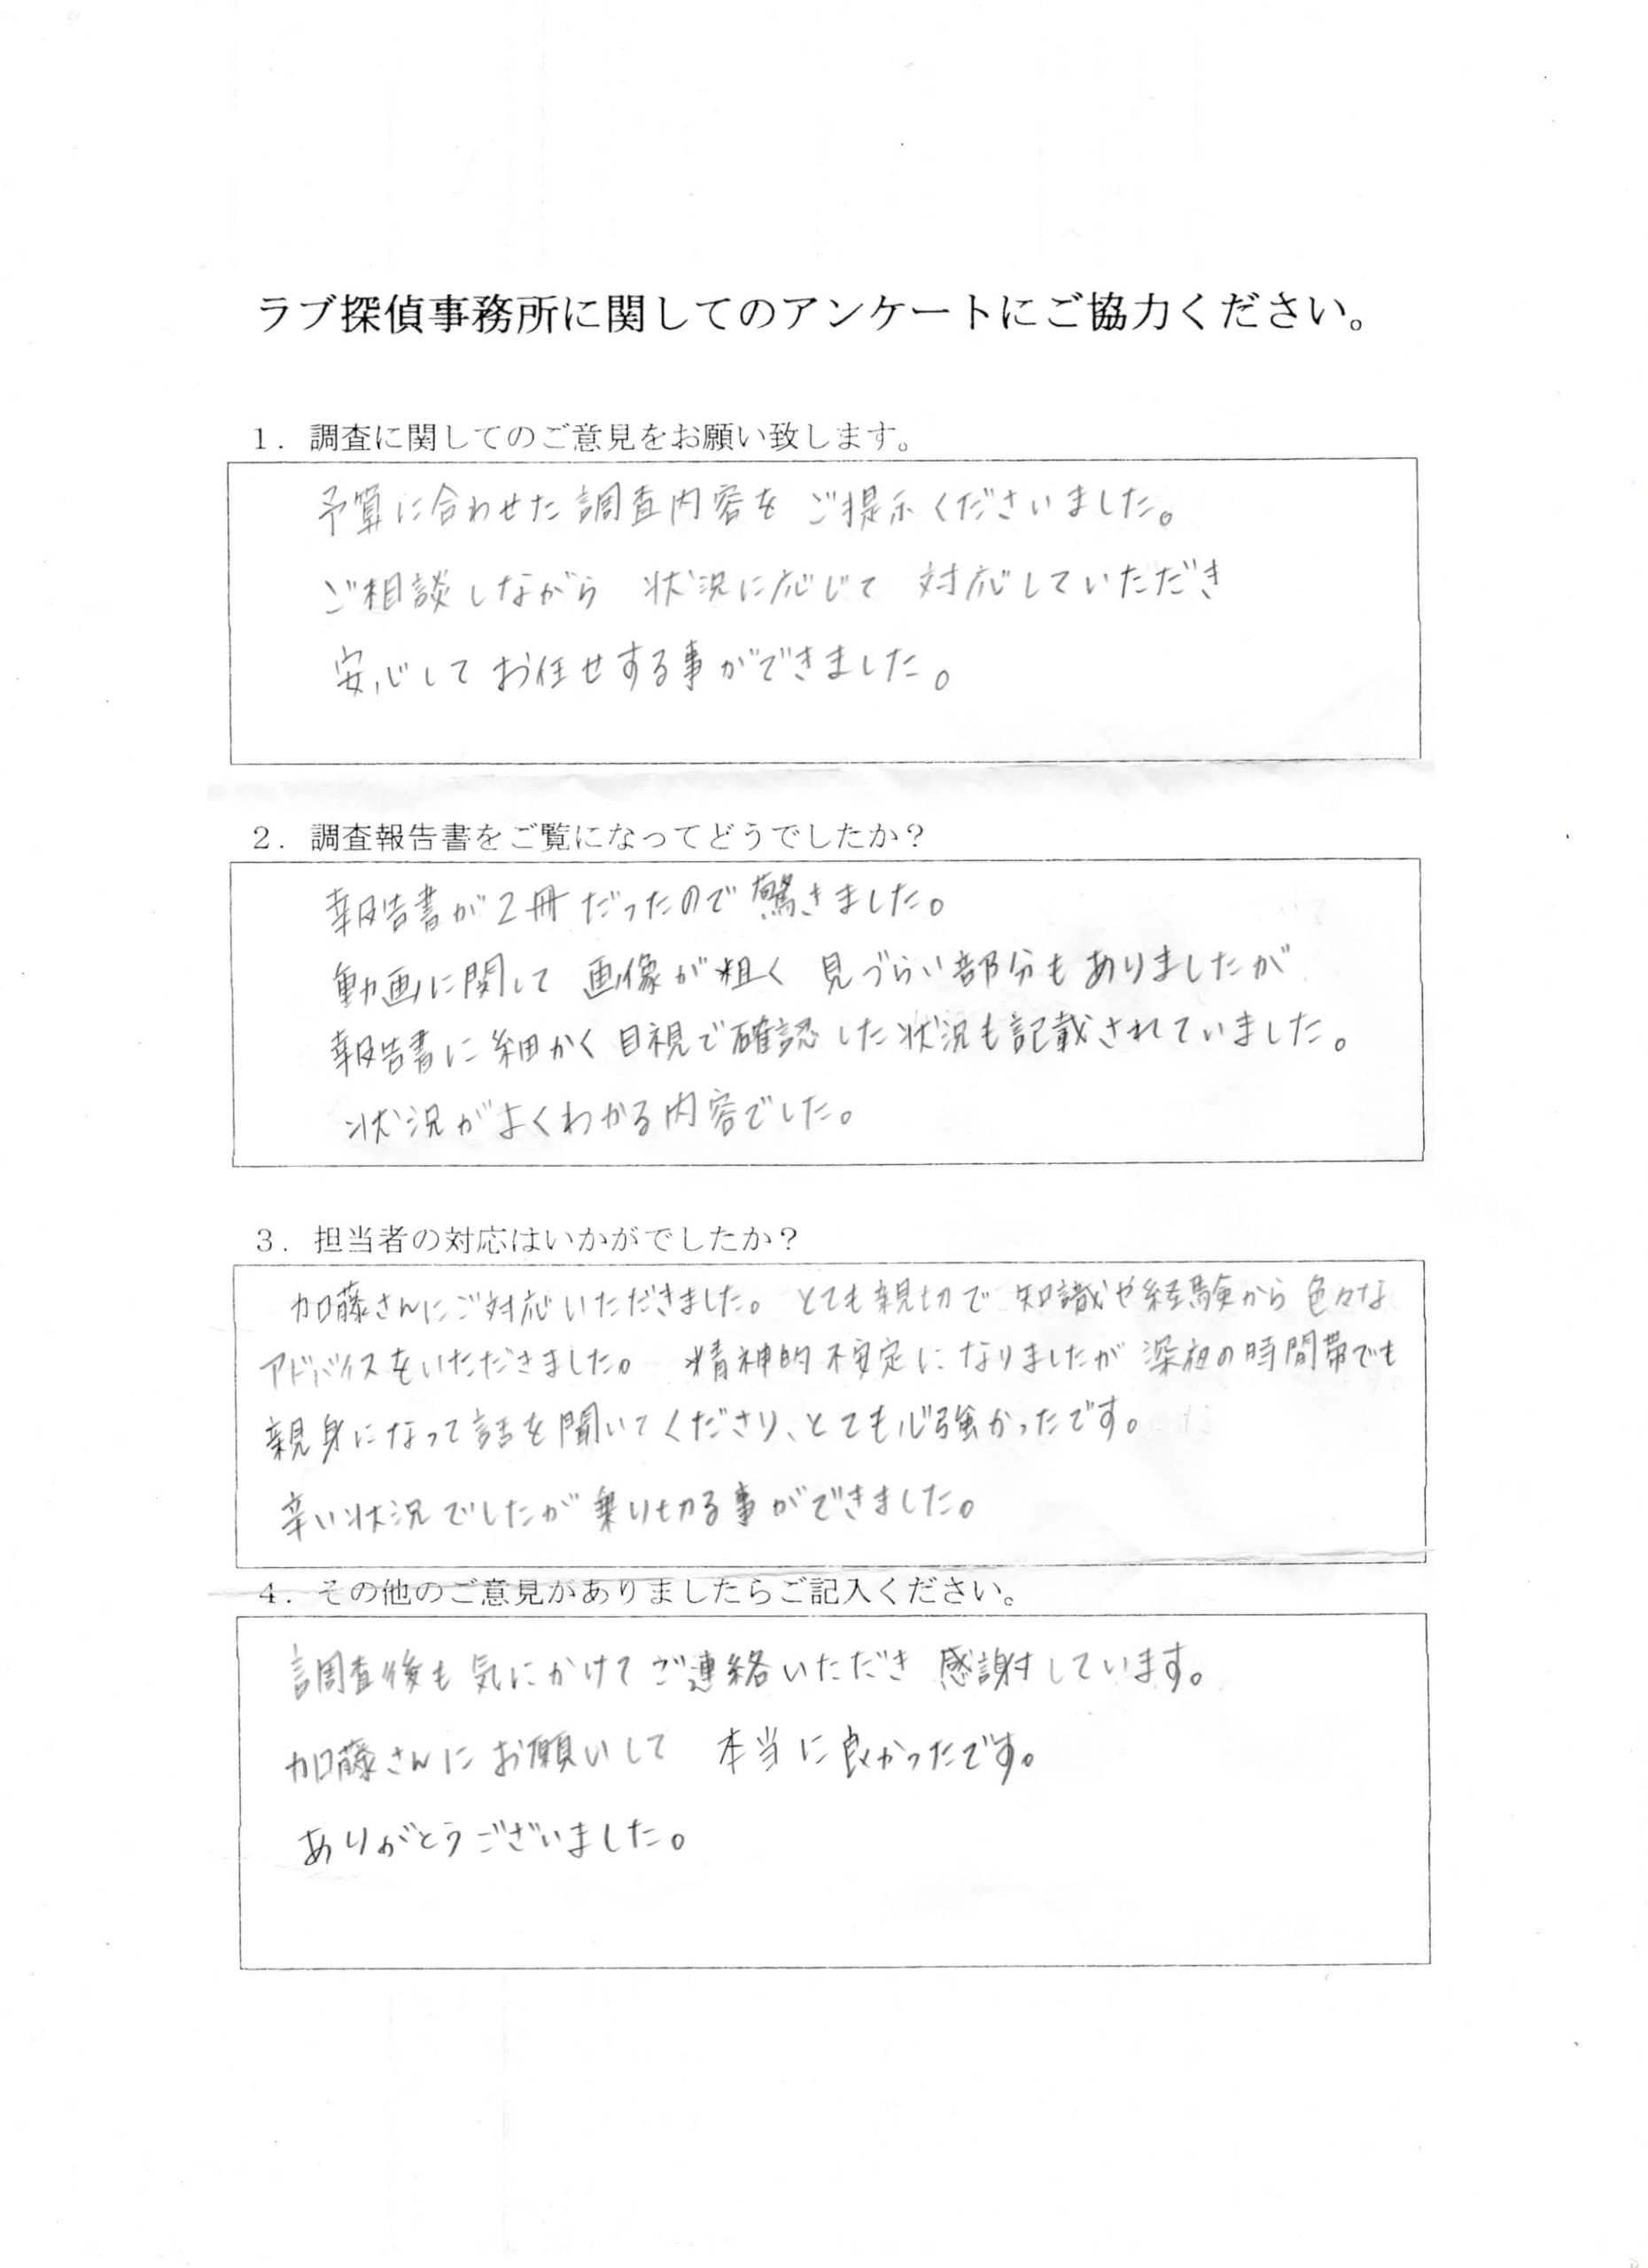 ラブ探偵事務所に関してのアンケートにご協力ください。
1．調査に関してのご意見をお願い致します。
予算に合わせた調査内容を ご提示くださいました。
ご相談しながら 状況に応じて 対応していただき
安心して お任せする事ができました。
2．調査報告書をご覧になってどうでしたか？
報告書が2冊だったので驚きました。
動画に関して 画像が粗く 見づらい部分もありましたが
報告書に細かく目視で確認した状況も記載されていました。
状況がよくわかる内容でした。
3．担当者の対応はいかがでしたか？
加藤さんにご対応いただきました。とても親切で 知識や経験から色々な
アドバイスをいただきました。精神的不安定になりましたが深夜の時間帯でも
親身になって話を聞いてくださり、とても心強かったです。
辛い状況でしたが乗り切る事ができました。
4．その他のご意見がありましたらご記入ください。
調査後も気にかけてご連絡いただき 感謝しています。
加藤さんにお願いして 本当に良かったです。
ありがとうございました。